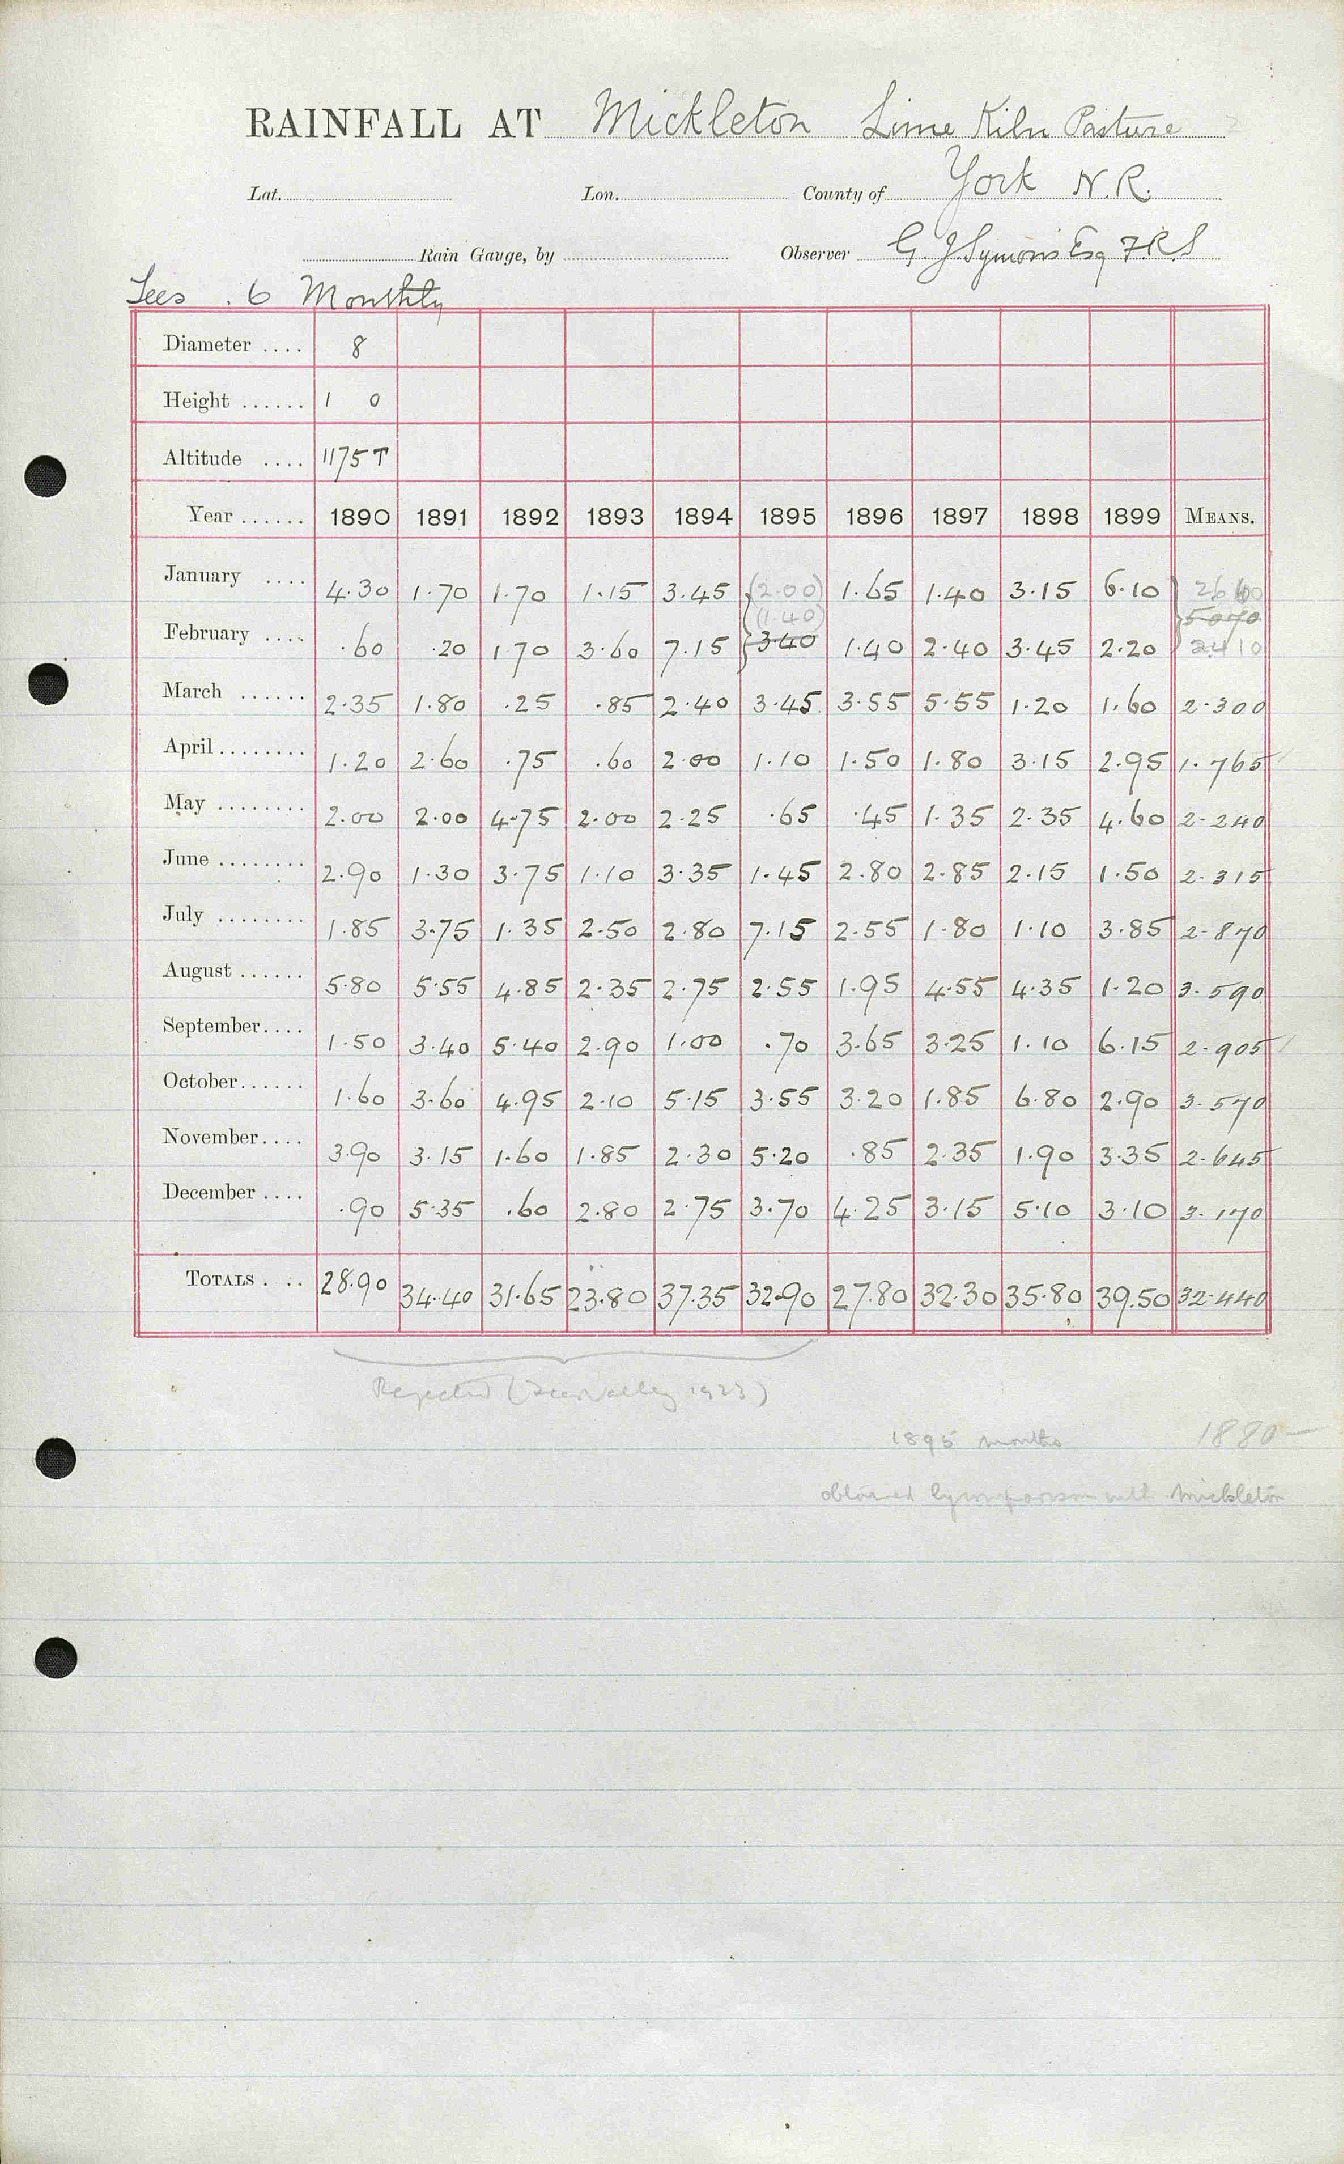 RAINFALL AT Mickleton Lime Kiln Pasture
Lat. Lon. County of York N.R.
Rain Gauge, by Observer G J Symons Esq F.R.S
Tees . 6 Monthly
Diameter .... 8
Height ...... 1 0
Altitude .... 1175 T
Year ...... 1890 1891 1892 1893 1894 1895 1896 1897 1898 1899 MEANS.
January .... 4.30 1.70 1.70 1.15 3.45 (2.00) 1.65 1.40 3.15 6.10
(1.40) 5.070
February .... .60 .20 1.70 3.60 7.15 3.40 1.40 2.40 3.45 2.20 2.410
March ...... 2.35 1.80 .25 .85 2.40 3.45 3.55 5.55 1.20 1.60 2.300
April ........ 1.20 2.60 .75 .60 2.00 1.10 1.50 1.80 3.15 2.95 1.765
May ........ 2.00 2.00 4.75 2.00 2.25 .65 .45 1.35 2.35 4.60 2.240
June ........ 2.90 1.30 3.75 1.10 3.35 1.45 2.80 2.85 2.15 1.50 2.315
July ........ 1.85 3.75 1.35 2.50 2.80 7.15 2.55 1.80 1.10 3.85 2.870
August ...... 5.80 5.55 4.85 2.35 2.75 2.55 1.95 4.55 4.35 1.20 3.590
September.... 1.50 3.40 5.40 2.90 1.00 .70 3.65 3.25 1.10 6.15 2.905
October...... 1.60 3.60 4.95 2.10 5.15 3.55 3.20 1.85 6.80 2.90 3.570
November.... 3.90 3.15 1.60 1.85 2.30 5.20 .85 2.35 1.90 3.35 2.645
December .... .90 5.35 .60 2.80 2.75 3.70 4.25 3.15 5.10 3.10 3.170
TOTALS .... 28.90 34.40 31.65 23.80 37.35 32.90 27.80 32.30 35.80 39.50 32.440
Rejected (Tees Valley 1923)
1895 months 1880-
obtained by comparison with Mickleton